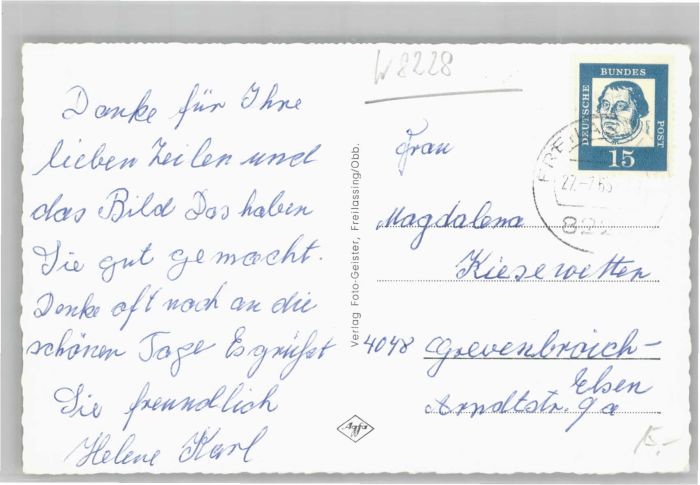 W8228
Danke für Ihre
lieben Zeilen und
das Bild Das haben
Sie gut gemacht.
Denke oft noch an die
schönen Tage Es grüßt
Sie freundlich
Helene Karl
Verlag Foto-Geister, Freilassing/Obb.
Agfa
DEUTSCHE
BUNDES
POST
15
27.-7.65
822
Frau
Magdalena
Kiesewetten
4048 Grevenbroich-
Elsen
Arndtstr. 9a
15,-